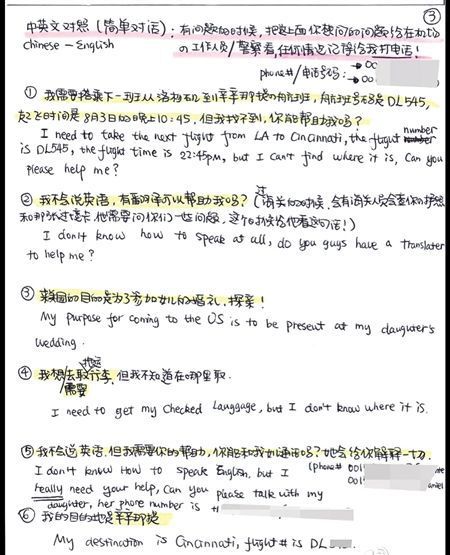 ③
中英文对照(简单对话): 有问题的时候,把以上面你想问的问题给在机场
chinese - English 的工作人员/警察看,任何情况记得给我打电话!
phone#/电话号码: → 00
→ 00
① 我需要搭乘下一班从洛杉矶到辛辛那提的航班,航班号码是DL545,
起飞时间是8月3日的晚上10:45,但我找不到,你能帮助我吗?
I need to take the next flight from LA to Cincinnati, the flight number
is DL545, the flight time is 22:45pm, but I can't find where it is, Can you
please help me?
② 我不会说英语,有翻译可以帮助我吗?(过海关的时候,会有海关人员会查你的护照
和那张过境卡,他需要问你们一些问题,这个时候给他看这句话!)
I don't know how to speak at all, do you guys have a translater
to help me?
③ 来美国的目的是为了参加女儿的婚礼,探亲!
My purpose for coming to the US is to be present at my daughter's
wedding.
④ 我想去取托运行李,但我不知道在哪里取.
需要
I need to get my checked Languages, but I don't know where it is.
⑤ 我不会说英语,但我需要你的帮助,你能和我女儿通话吗?她会给你解释一切.
I don't know How to speak English, but I (phone# 001
really need your help, Can you please talk with my 001 aniel
daughter, her phone number is +
⑥ 我的目的地是辛辛那提
My destination is Cincinnati, flight# is DL